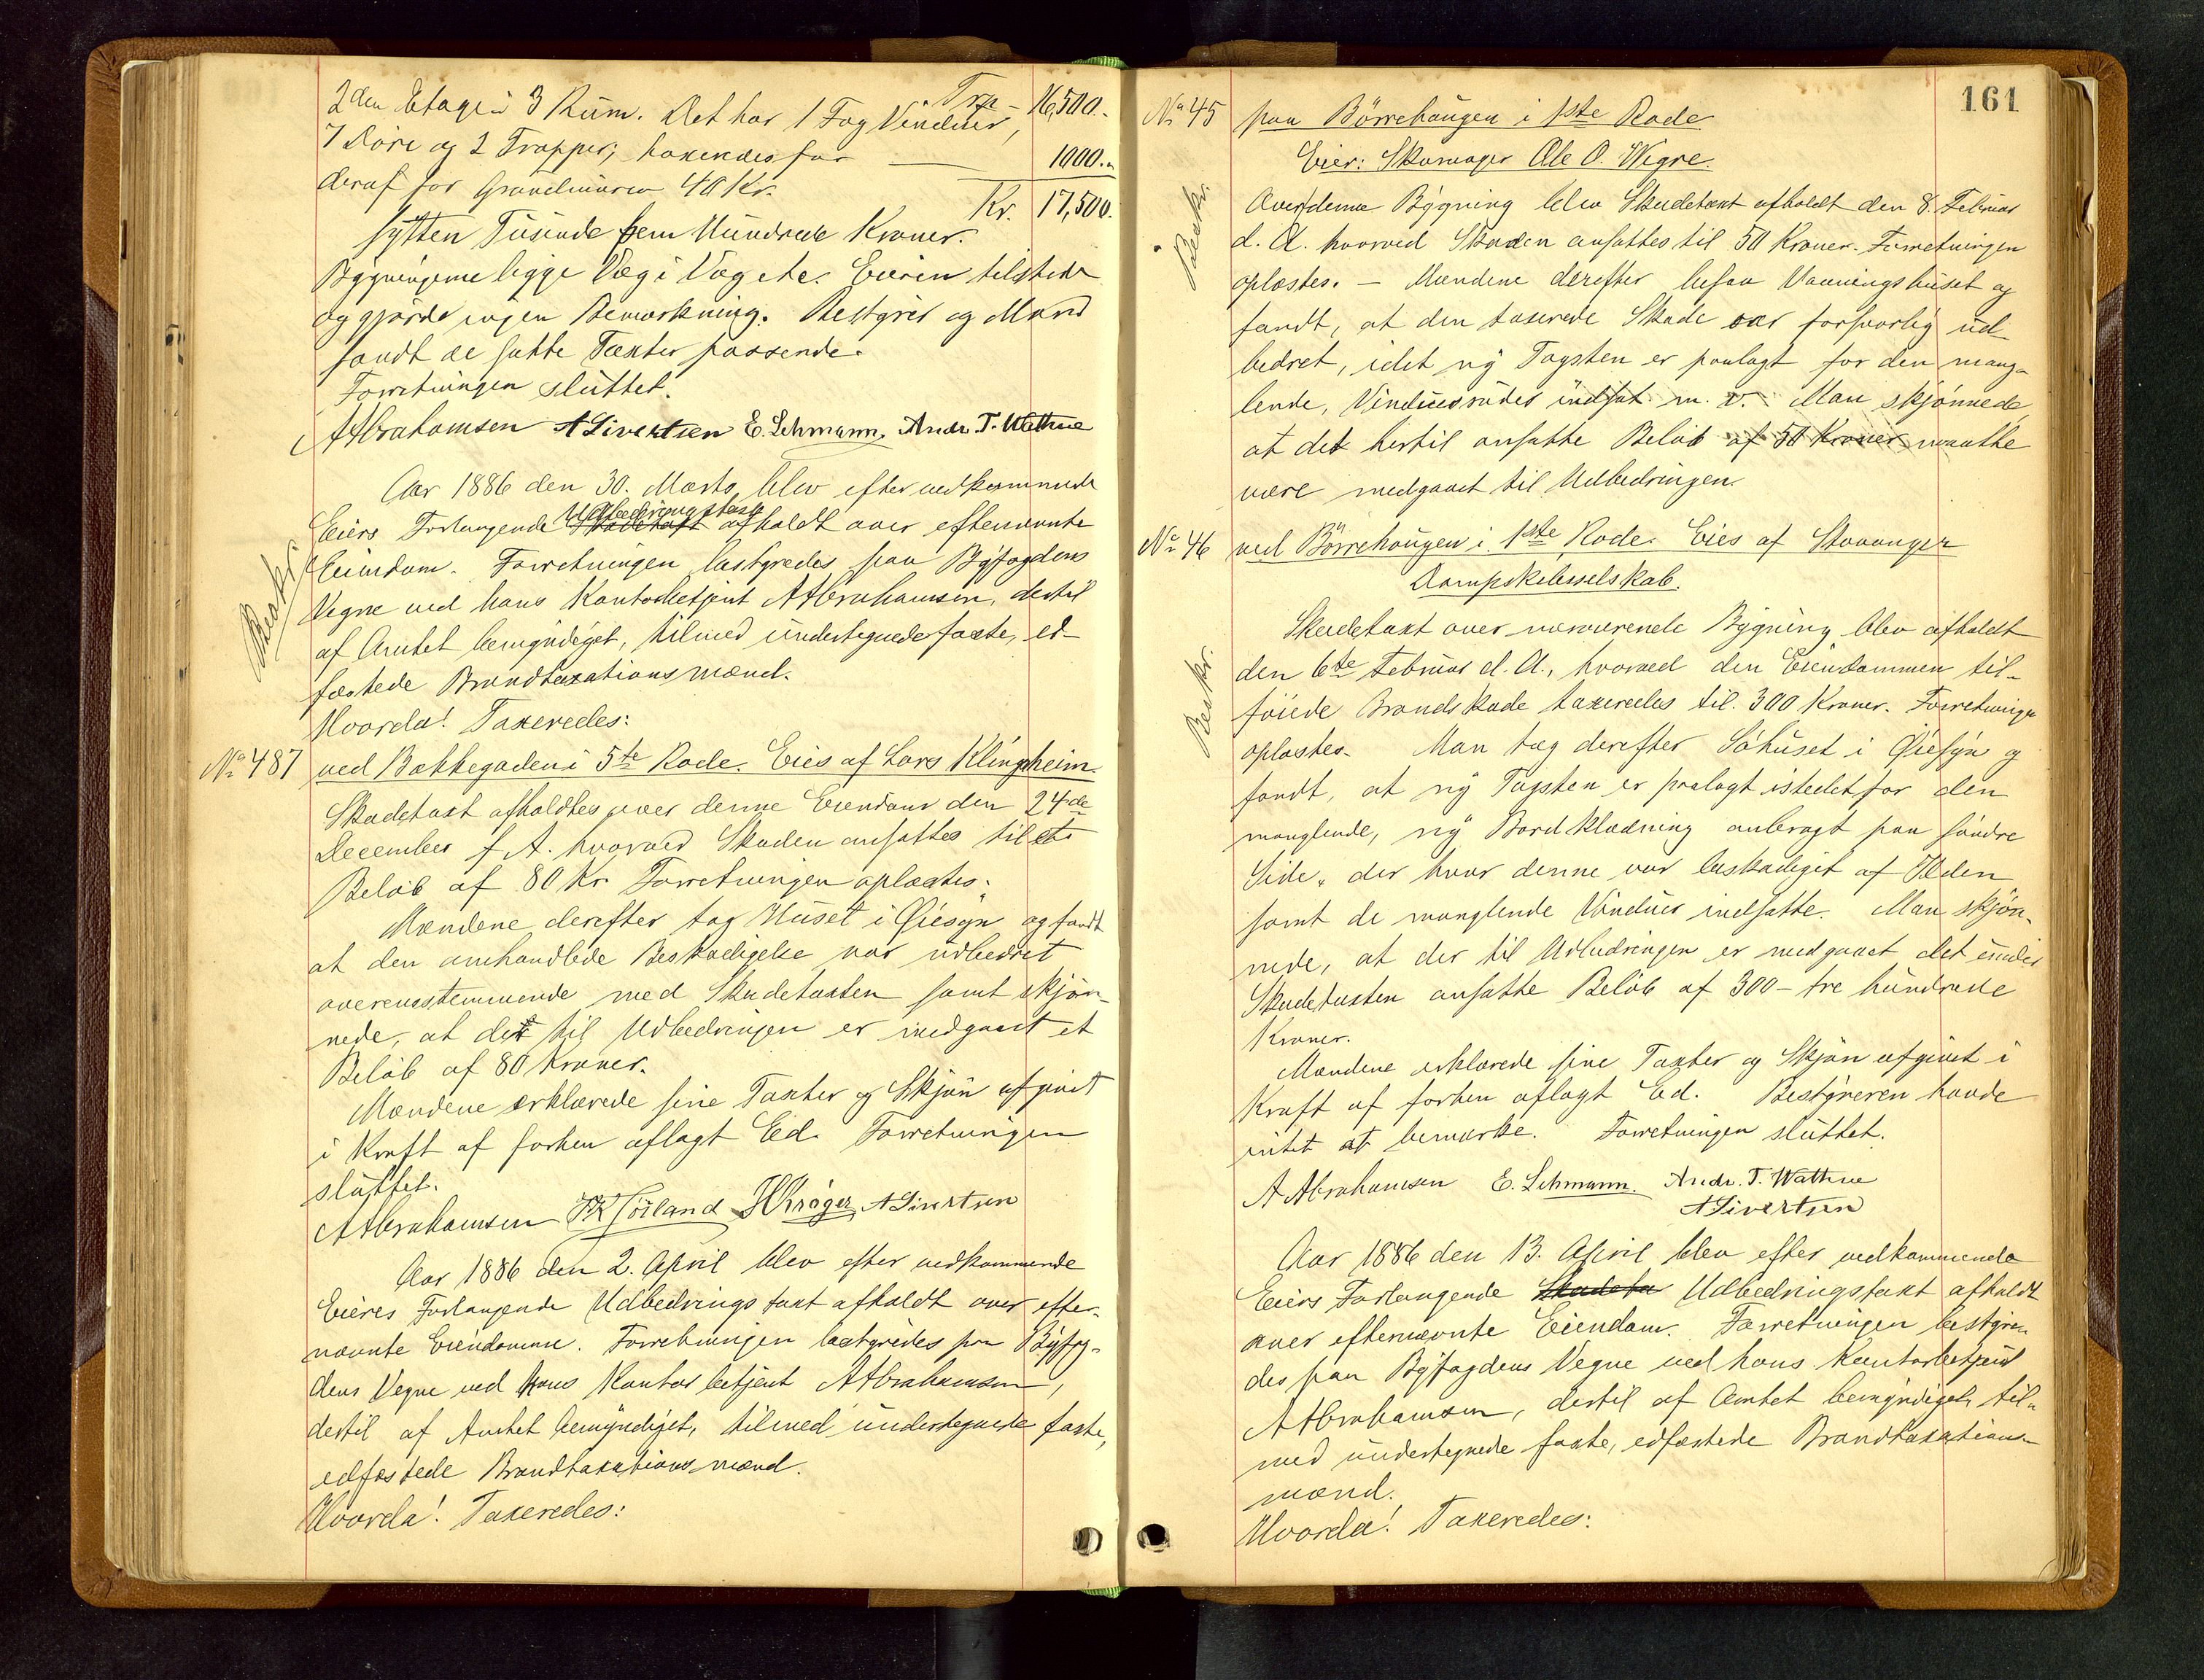 Trp - 16,500.-
2den Etage i 3 Rum. Det har 1 Fag Vinduer,
7 Döre og 2 Trapper; taxeredes for — 1000.-
deraf for Grundmuren 40 Kr.
Kr. 17,500.
sytten Tusinde fem Hundrede Kroner.
Bygningerne ligge Væg i Væg etc. Eieren tilstede
og gjorde ingen Bemærkning. Bestyrer og Mænd
fandt de satte Taxter passende.
Forretningen sluttet.
A Abrahamsen A Sivertsen E. Lehmann. Andr. T. Wathne
Aar 1886 den 30. Marts blev efter vedkommende
Udbedringstaxt
Eiers Forlangende Skadetaxt afholdt over efternævnte
Eiendom. Forretningen bestyredes paa Byfogdens
Beskr.
Vegne ved hans Kontorbetjent A Abrahamsen, dertil
af Amtet bemyndiget, tilmed undertegnede faste, ed-
fæstede Brandtaxationsmænd.
Hvorda! Taxeredes:
No 487 ved Bakkegaden i 5te Rode. Eies af Lars Klingsheim.
Skadetaxt afholdtes over denne Eiendom den 24de
December f. A. hvorved Skaden ansattes til et
Beløb af 80 Kr. Forretningen oplæstes.
Mændene derefter tog Huset i Øiesyn og fandt
at den omhandlede Beskadigelse var udbedret
overensstemmende med Skadetaxten samt skjøn-
nede, at der til Udbedringen er medgaaet et
Beløb af 80 Kroner.
Mændene erklærede sine Taxter og Skjøn afgivet
i Kraft af forhen aflagt Ed. Forretningen
sluttet.
A Abrahamsen H Kröger A Sivertsen
Aar 1886 den 2. April blev efter vedkommende
Eieres Forlangende Udbedringstaxt afholdt over efter-
nævnte Eiendomme. Forretningen bestyredes paa Byfog-
dens Vegne ved hans Kontorbetjent A Abrahamsen,
dertil af Amtet bemyndiget, tilmed undertegnede faste,
edfæstede Brandtaxationsmænd.
Hvorda! Taxeredes:
161
No 45 paa Börrehaugen i 1ste Rode
Eier: Skomager Ole O. Wigre.
Beskr.
Over denne Bygning blev Skadetaxt afholdt den 8. Februar
d. A. hvorved Skaden ansattes til 50 Kroner. Forretningen
oplæstes. — Mændene derefter besaa Vaaningshuset og
fandt, at den taxerede Skade var forsvarlig ud-
bedret, idet ny Tagsten er paalagt for den mang-
lende, Vinduesruder indsat m. v. Man skjønnede,
at det hertil ansatte Beløb af 50 Kroner maatte
være medgaaet til Udbedringen.
No 46 ved Börrehaugen i 1ste Rode. Eies af Stavanger
Dampskibsselskab.
Skadetaxt over nærværende Bygning blev afholdt
Beskr.
den 6te Februar d. A., hvorved den Eiendommen til-
føiede Brandskade taxeredes til 300 Kroner. Forretningen
oplæstes. Man tog derefter Söhuset i Øiesyn og
fandt, at ny Tagsten er paalagt istedetfor den
manglende, ny Bordklædning anbragt paa søndre
Side, der hvor denne var beskadiget af Ilden
samt de manglende Vinduer indsatte. Man skjøn-
nede, at der til Udbedringen er medgaaet det under
Skadetaxten ansatte Beløb af 300 - tre hundrede
Kroner.
Mændene erklærede sine Taxter og Skjøn afgivet i
Kraft af forhen aflagt Ed. Bestyreren havde
intet at bemærke. Forretningen sluttet.
A Abrahamsen E. Lehmann. Andr. T. Wathne
A Sivertsen
Aar 1886 den 13. April blev efter vedkommende
Eiers Forlangende Skadeta Udbedringstaxt afholdt
over efternævnte Eiendom. Forretningen bestyre-
des paa Byfogdens Vegne ved hans Kontorbetjent
A Abrahamsen, dertil af Amtet bemyndiget, til-
med undertegnede faste, edfæstede Brandtaxations-
mænd.
Hvorda! Taxeredes: